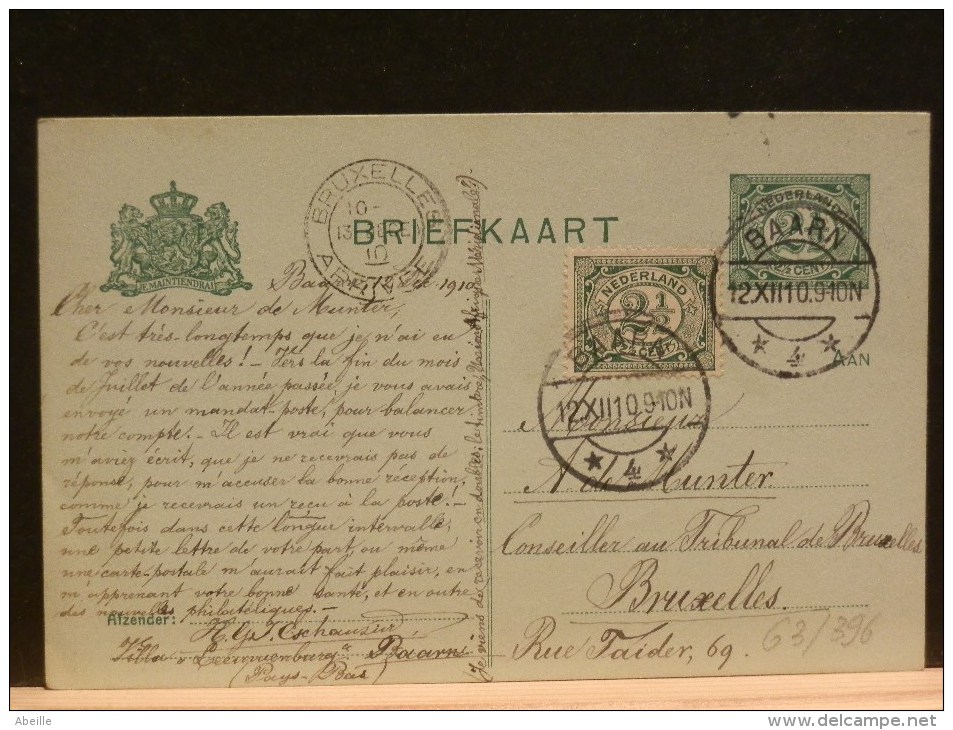 BRUXELLES
10-
13
10
BRIEFKAART
JE MAINTIENDRAI
NEDERLAND
2½
2½ CENT
BAARN
12.XII10.9-10N
4
NEDERLAND
2½
2½ CENT
BAARN
12.XII10.9-10N
4
AAN
Baarn, 12 1910
Cher Monsieur de Munter,
C'est très-longtemps que je n'ai eu
de vos nouvelles! - Vers la fin du mois
de juillet de l'année passée je vous avais
envoyé un mandat-poste, pour balancer
notre compte. - Il est vrai que vous
m'aviez écrit, que je ne recevrais pas de
réponse, pour m'accuser la bonne réception,
comme je recevrais un reçu à la poste! -
Toutefois dans cette longue intervalle,
une petite lettre de votre part, ou même
une carte-postale m'aurait fait plaisir, en
m'apprenant votre bonne santé, et en outre
des nouvelles philatéliques. -
Afzender: H. G. J. Eschauzier,
Villa Baarn
(Pays-Bas)
Je viens de recevoir en doubles: le timbre
Monsieur
A. de Munter.
Conseiller au Tribunal de Bruxelles
Bruxelles.
Rue Faider, 69.
63/396
Abeille
www.delcampe.net